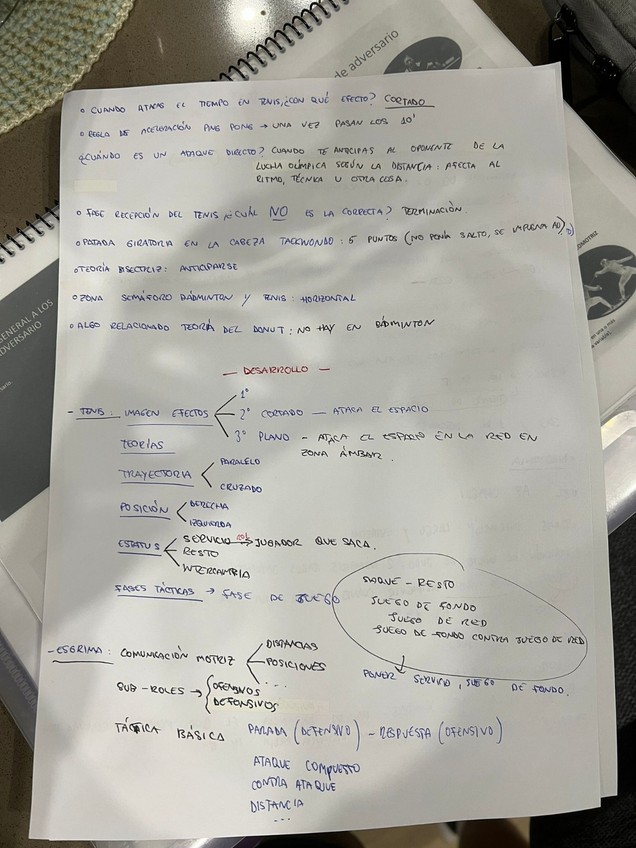 de adversario
o CUANDO ATACAS EL TIEMPO EN TENIS, ¿CON QUÉ EFECTO? CORTADO
o REGLA DE ACELERACIÓN PING PONG → UNA VEZ PASAN LOS 10'
¿CUÁNDO ES UN ATAQUE DIRECTO? CUANDO TE ANTICIPAS AL OPONENTE DE LA
LUCHA OLÍMPICA SEGÚN LA DISTANCIA: AFECTA AL
RITMO, TÉCNICA U OTRA COSA.
o FASE RECEPCIÓN DEL TENIS ¿CUÁL NO ES LA CORRECTA? TERMINACIÓN.
o PATADA GIRATORIA EN LA CABEZA TAEKWONDO: 5 PUNTOS (NO PONÍA SALTO, SE
o TEORÍA BISECTRIZ: ANTICIPARSE
o ZONA SEMÁFORO BÁDMINTON Y TENIS: HORIZONTAL
o ALGO RELACIONADO TEORÍA DEL DONUT: NO HAY EN BÁDMINTON
GENERAL A LOS
ADVERSARIO
— DESARROLLO —
- TENIS: IMAGEN EFECTOS
1º
2º CORTADO — ATACA EL ESPACIO
3º PLANO - ATACA EL ESPACIO EN LA RED EN
ZONA ÁMBAR.
TEORÍAS
TRAYECTORIA
PARALELO
CRUZADO
POSICIÓN
DERECHA
IZQUIERDA
ESTATUS
SERVICIO rol → JUGADOR QUE SACA.
RESTO
INTERCAMBIA
FASES TÁCTICAS → FASE DE JUEGO
SAQUE - RESTO
JUEGO DE FONDO
JUEGO DE RED
JUEGO DE FONDO CONTRA JUEGO DE RED
PONER SERVICIO, JUEGO DE FONDO.
- ESGRIMA: COMUNICACIÓN MOTRIZ
DISTANCIAS
POSICIONES
...
SUB-ROLES → OFENSIVOS
DEFENSIVOS
TÁCTICA BÁSICA PARADA (DEFENSIVO) - RESPUESTA (OFENSIVO)
ATAQUE COMPUESTO
CONTRA ATAQUE
DISTANCIA
...